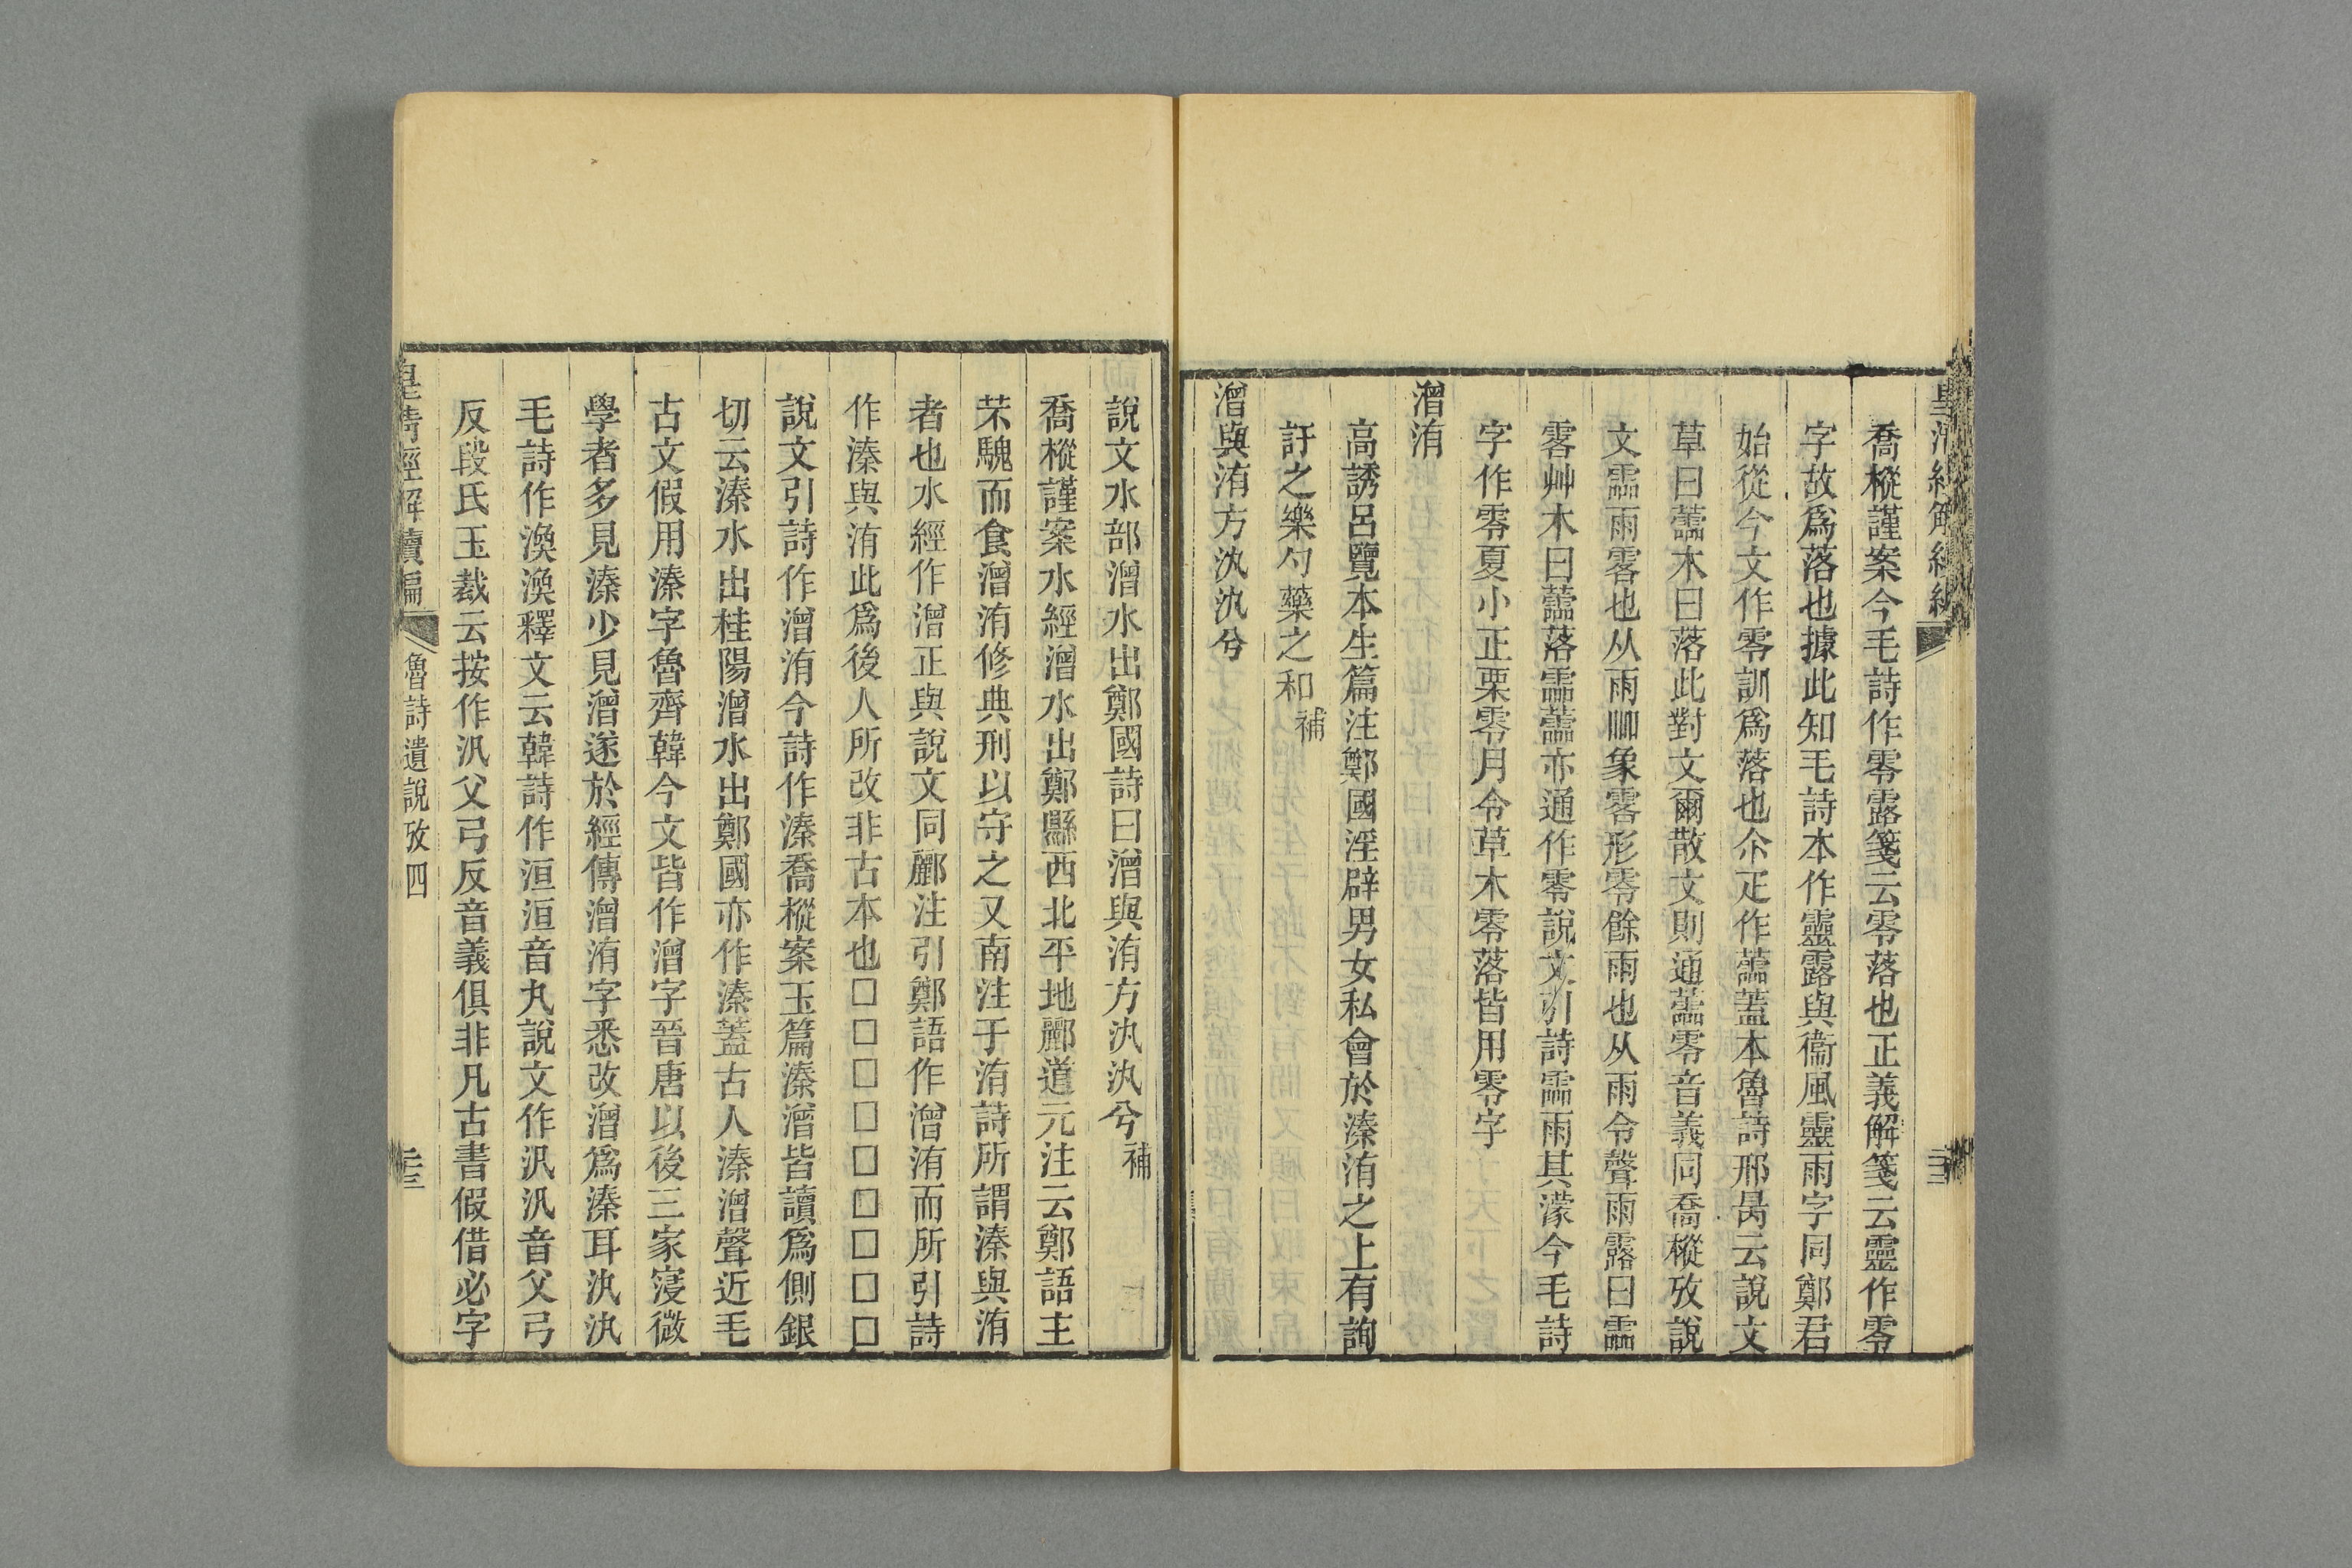 喬樅謹案今毛詩作零露箋云零落也正義解箋云靈作零
字故爲落也據此知毛詩本作靈露與衞風靈雨字同鄭君
始從今文作零訓爲落也尒疋作蘦蓋本魯詩邢昺云說文
草曰蘦木曰落此對文爾散文則通蘦零音義同喬樅攷說
文霝雨零也从雨𠱠象零形零餘雨也从雨令聲雨露曰霝
零艸木曰蘦落霝蘦亦通作零說文引詩霝雨其濛今毛詩
字作零夏小正栗零月令草木零落皆用零字
潧洧
高誘呂覽本生篇注鄭國淫辟男女私會於溱洧之上有詢
訏之樂勺藥之和補
潧與洧方汍汍兮
說文水部潧水出鄭國詩曰潧與洧方汍汍兮補
喬樅謹案水經潧水出鄶縣西北平地酈道元注云鄭語主
芣騩而食潧洧修典刑以守之又南注于洧詩所謂溱與洧
者也水經作潧正與說文同酈注引鄭語作潧洧而所引詩
作溱與洧此爲後人所改非古本也□□□□□□□□□
說文引詩作潧洧今詩作溱喬樅案玉篇溱潧皆讀爲側銀
切云溱水出桂陽潧水出鄭國亦作溱蓋古人溱潧聲近毛
古文假用溱字魯齊韓今文皆作潧字晉唐以後三家寖微
學者多見溱少見潧遂於經傳潧洧字悉改潧爲溱耳汍汍
毛詩作渙渙釋文云韓詩作洹洹音丸說文作汎汎音父弓
反段氏玉裁云按作汎父弓反音義俱非凡古書假借必字
皇清經解續編 魯詩遺說攷四 三三